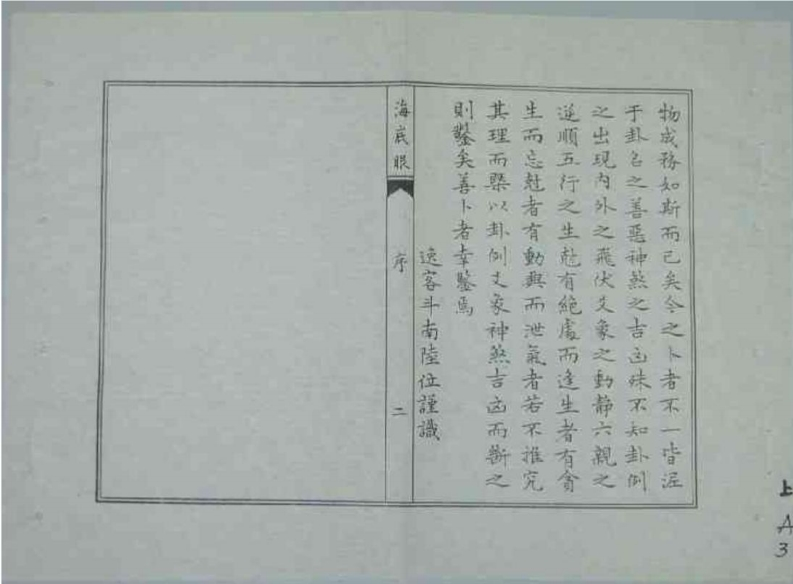 物成務如斯而已矣今之卜者不一皆泥
于卦名之善惡神煞之吉凶殊不知卦例
之出現內外之飛伏爻象之動靜六親之
逆順五行之生尅有絕處而逢生者有貪
生而忘尅者有動與而泄氣者若不推究
其理而槩以卦例爻象神煞吉凶而斷之
則鑿矣善卜者幸鑒焉
逸客斗南陸位謹識
海底眼
序
二
上
A
3